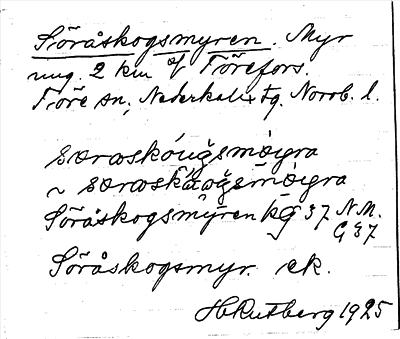 Söråskogsmyren. Myr
ung. 2 km of Törefors.
Töre sn, Nederkalix tg. Norrb. l.
særaskóuğsmøyra
~ særaskáoğsmøyra
Söråskogsmyren kg 37 N.M.
G 37
Söråskogsmyr. ek.
HRutberg 1925